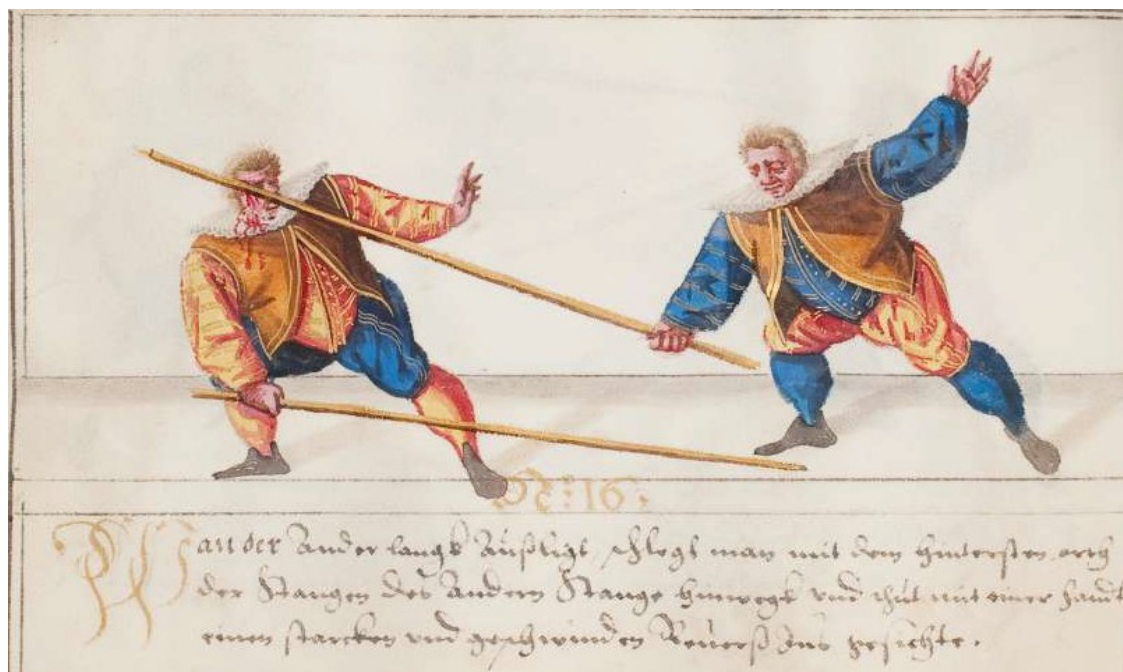 Wan der Ander langk Außligt, schlegt man mit dem hintersten orth
der Stangen des Andern Stange hinwegk vnd thut mit einer handt
einen starcken vnd geschwinden Reuerß Ins gesichte.